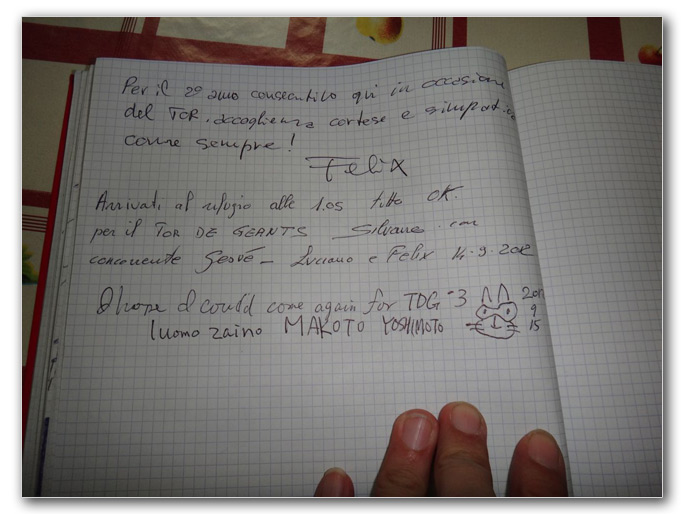 Per il 2º anno consecutivo qui in occasione
del TOR. accoglienza cortese e simpatica
come sempre!
Felix
Arrivati al rifugio alle 1.05 tutto OK.
per il TOR DE GEANTS Silvano con
concorrente Luciano e Felix 14.9.2012
I hope I could come again for TDG #3
201
9
15
luomo zaino MAKOTO YOSHIMOTO